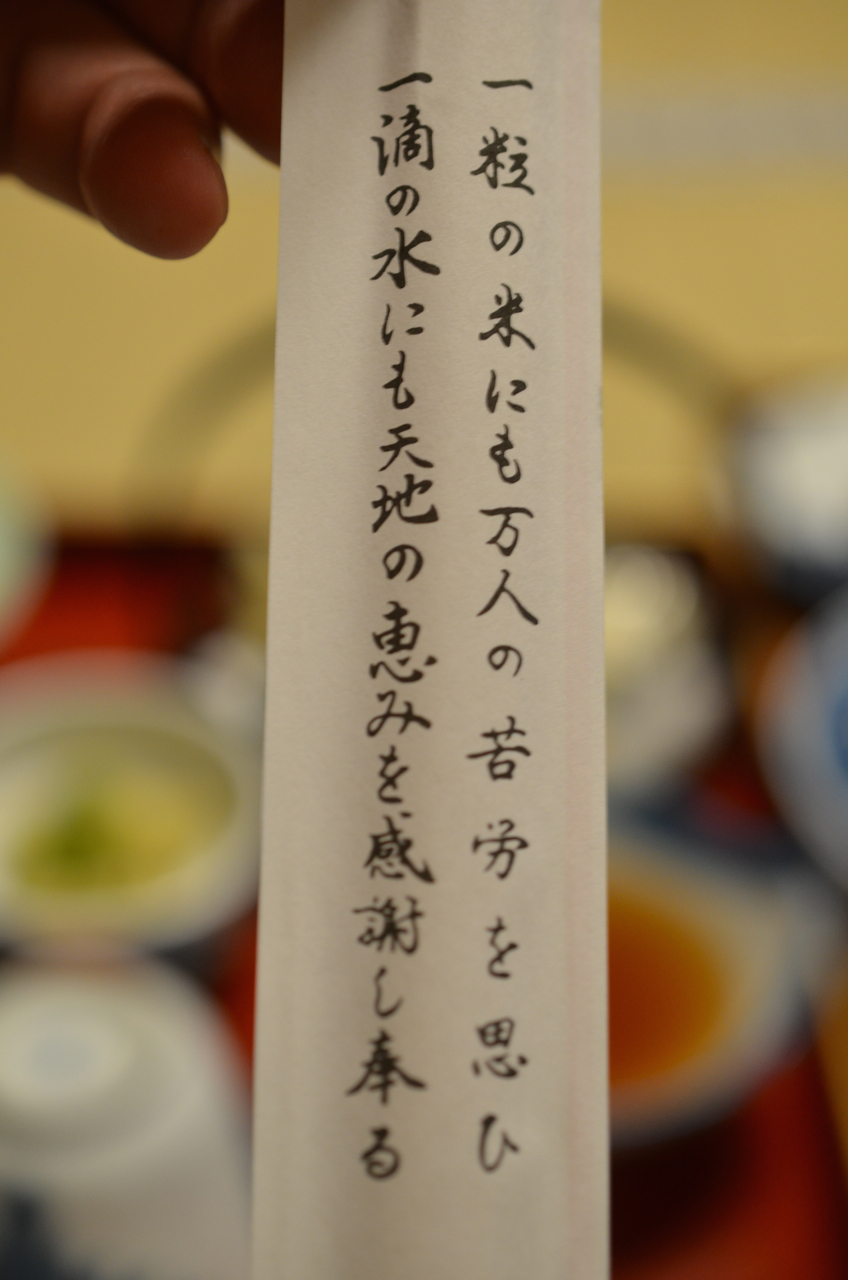 一粒の米にも万人の苦労を思ひ
一滴の水にも天地の恵みを感謝し奉る